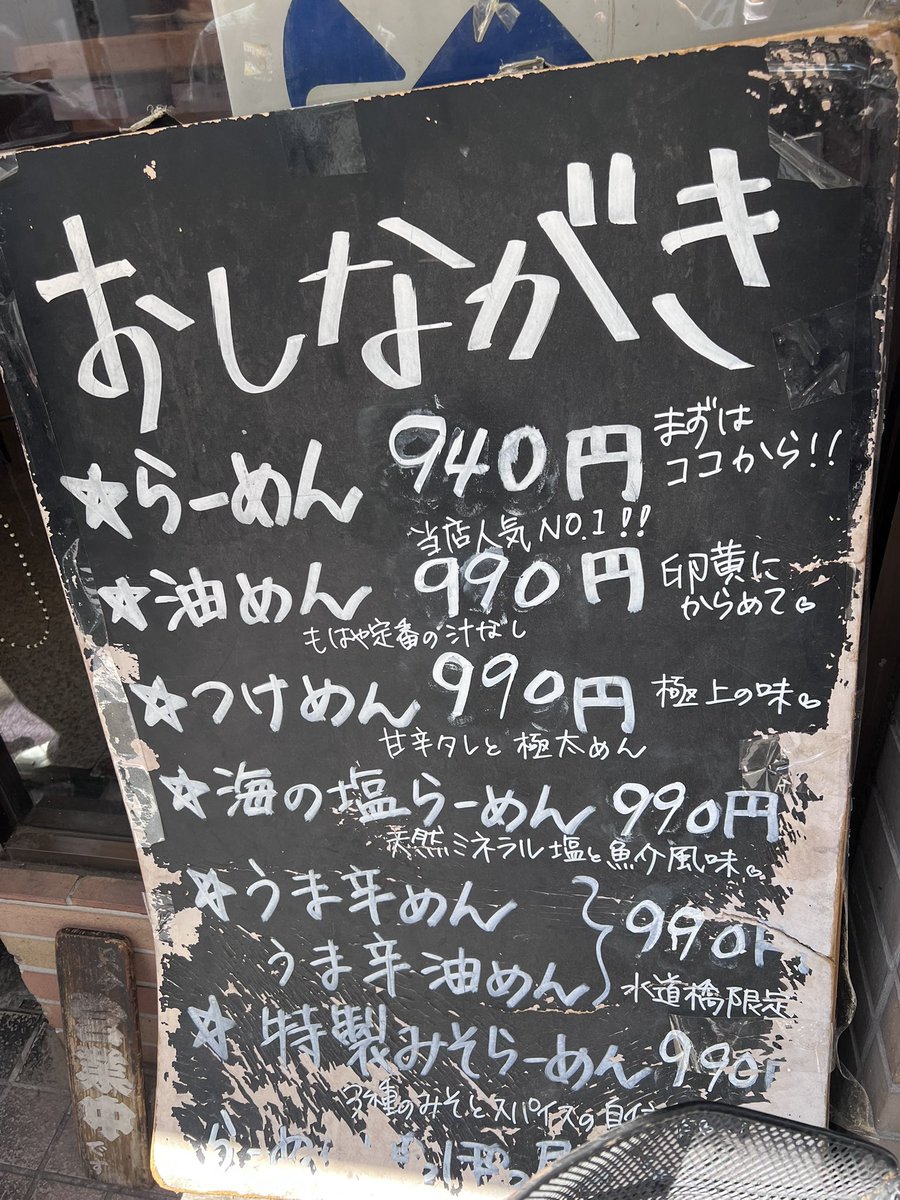 おしながき
☆らーめん 940円 まずはココから!!
当店人気NO.1!!
☆油めん 990円 卵黄にからめて♡
もはや定番の汁なし
☆つけめん 990円 極上の味♡
甘辛タレと極太めん
☆海の塩らーめん 990円
天然ミネラル塩と魚介風味♡
☆うま辛めん
うま辛油めん 990円
水道橋限定
☆特製みそらーめん 990円
3種のみそとスパイスの自
営業中です